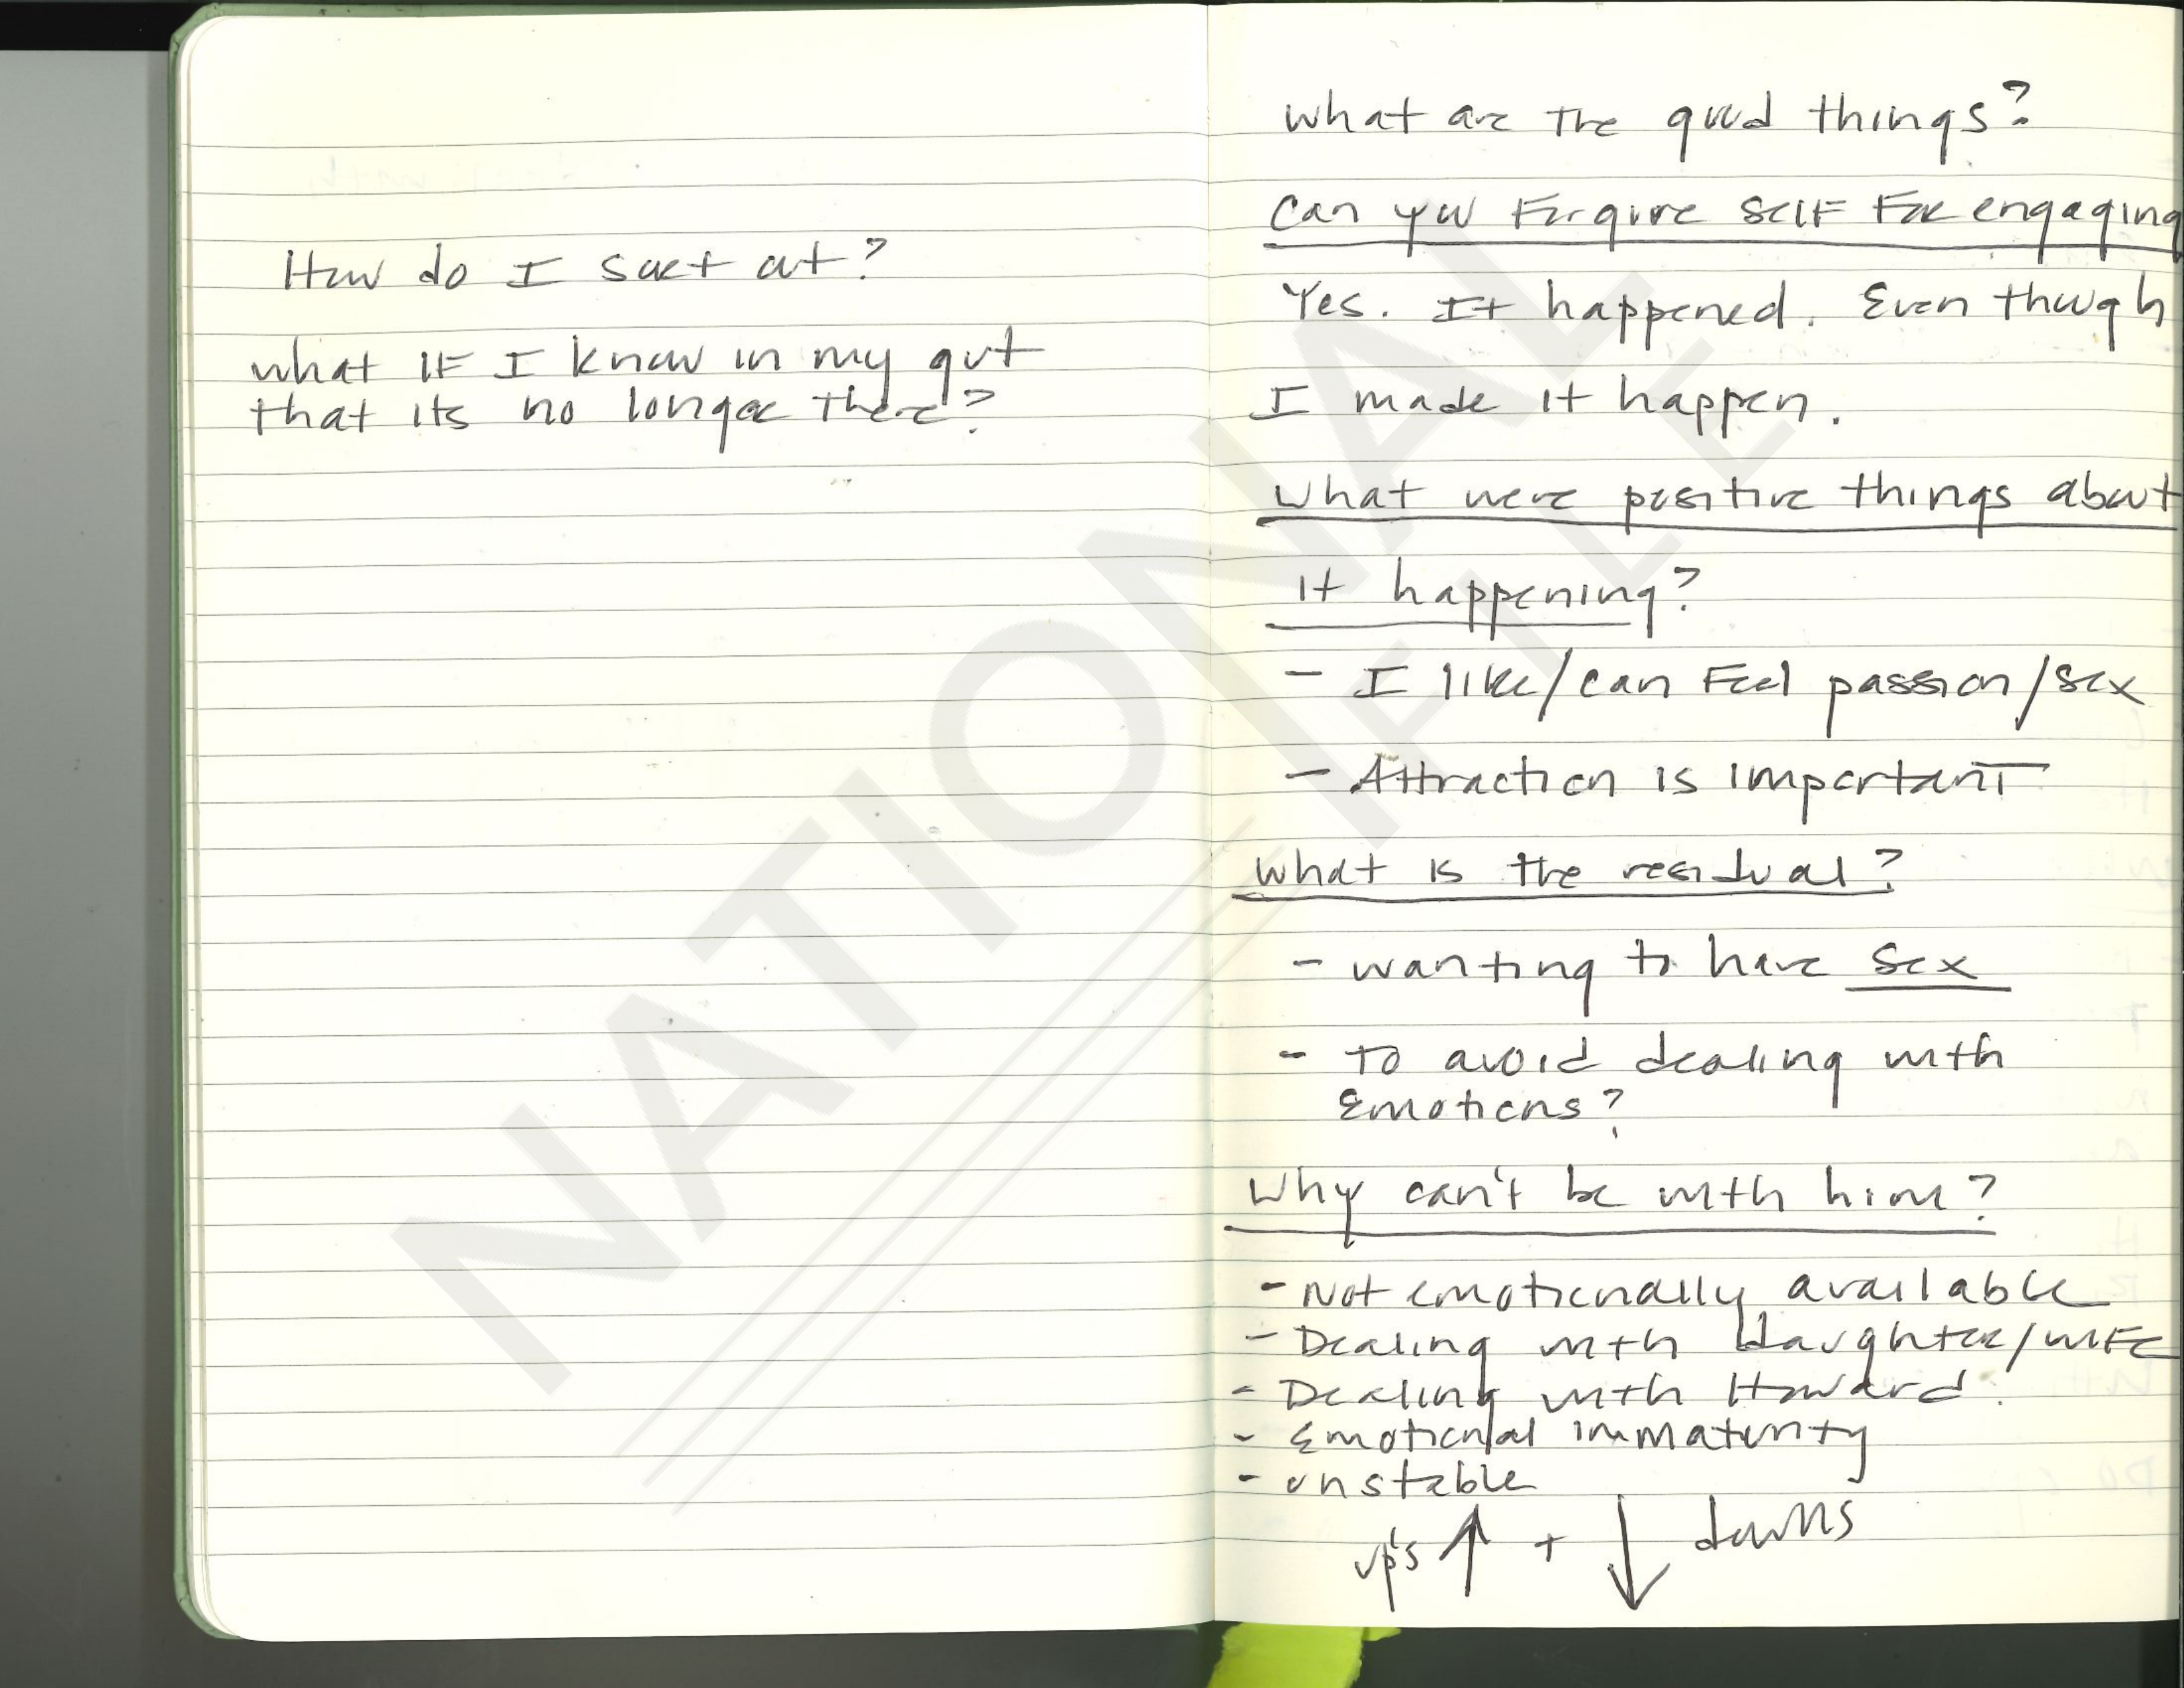 How do I sort out?
what IF I know in my gut
that its no longer there?
what are the good things?
Can you Forgive self For engaging
Yes. It happened. Even though
I made it happen.
what were positive things about
it happening?
- I like/can Feel passion/sex
- Attraction is important
what is the residual?
- wanting to have sex
- To avoid dealing with
Emotions?
Why can't be with him?
- Not emotionally available
- Dealing with daughter/wife
- Dealing with Howard.
- Emotional immaturity
- unstable
up's ↑ + ↓ downs
NATIONAL
FILE